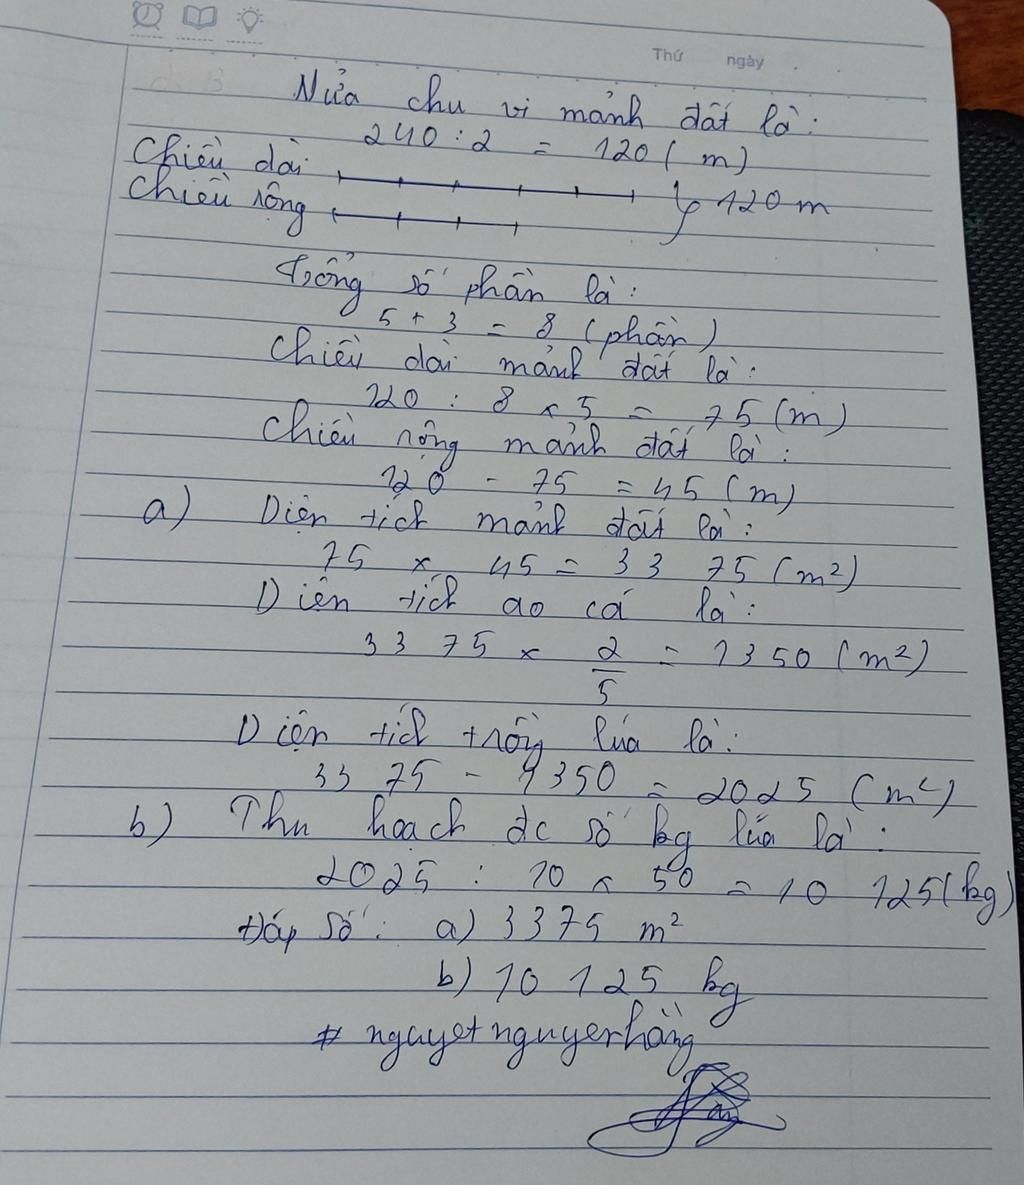 Thứ ngày
Nửa chu vi mảnh đất là:
240 : 2 = 120 (m)
Chiều dài
120 m
Chiều rộng
Tổng số phần là:
5 + 3 = 8 (phần)
Chiều dài mảnh đất là:
120 : 8 x 5 = 75 (m)
Chiều rộng mảnh đất là:
120 - 75 = 45 (m)
a) Diện tích mảnh đất là:
75 x 45 = 33 75 (m²)
Diện tích ao cá là:
33 75 x 2/5 = 1350 (m²)
Diện tích trồng lúa là:
33 75 - 1350 = 2025 (m²)
b) Thu hoạch đc số kg lúa là:
2025 : 10 x 50 = 10 125 (kg)
Đáp số: a) 3375 m²
b) 10 125 kg
# nguyetnguyerhằng